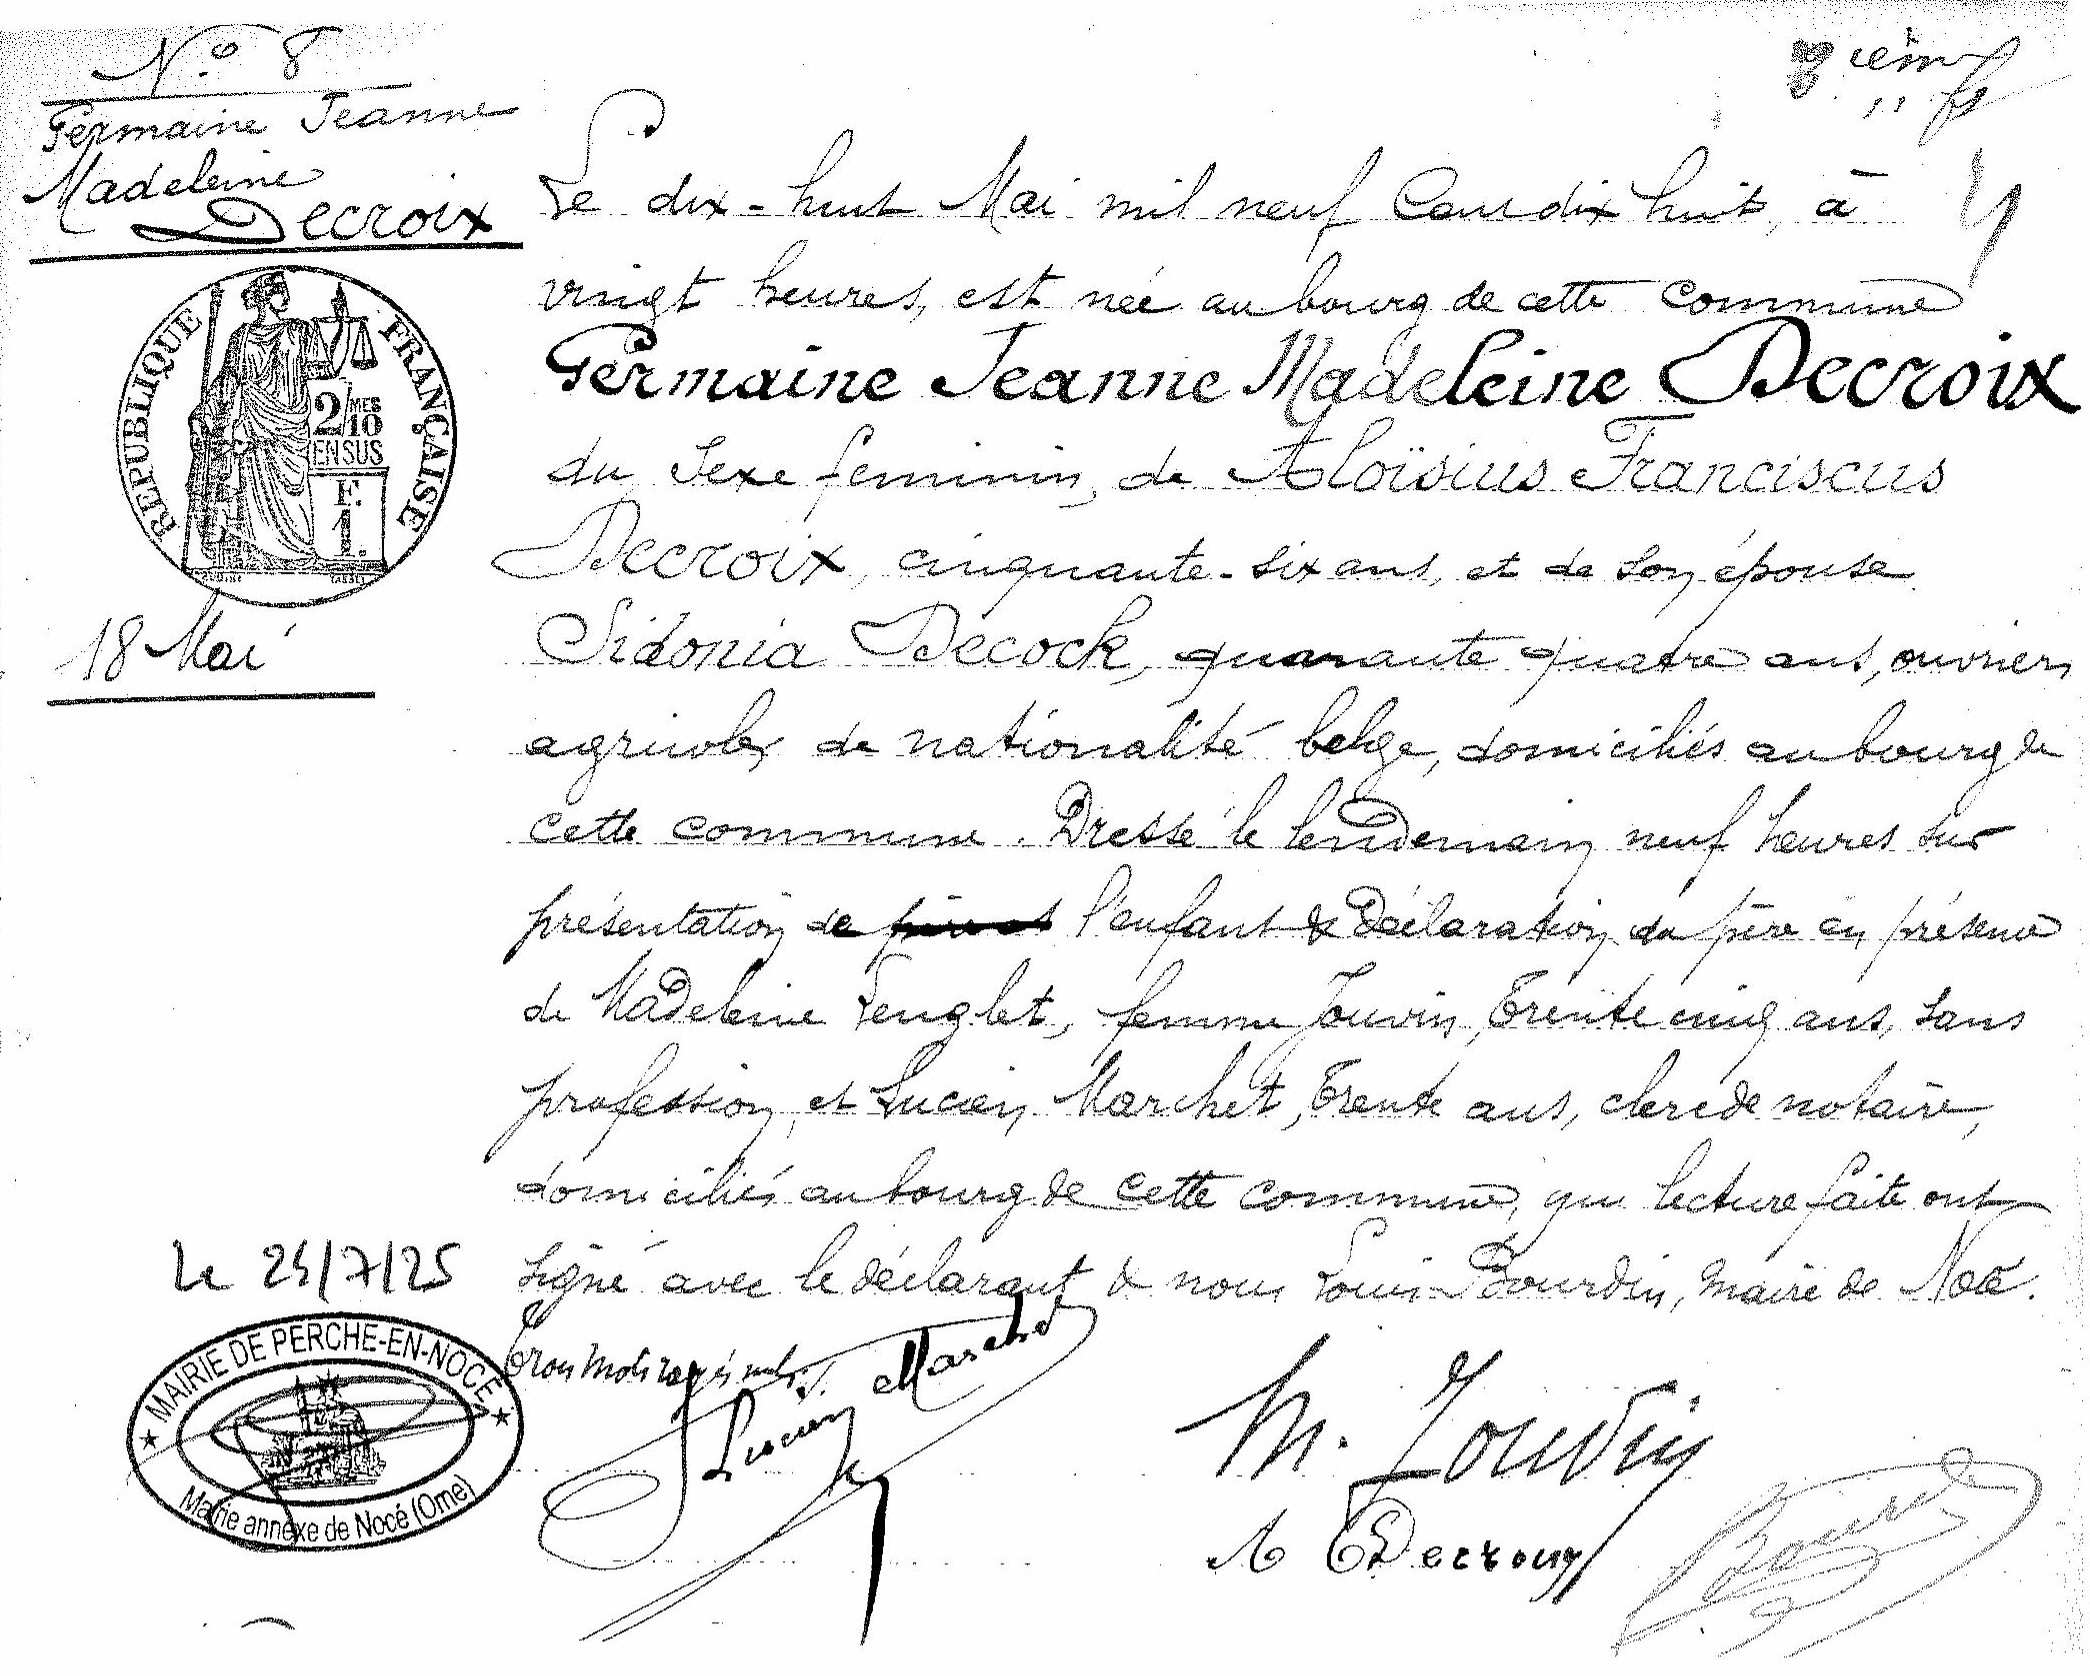 N.º 8
Germaine Jeanne
Madeleine
Decroix
Le dix-huit Mai mil neuf Cent dix huit, à
vingt heures, est née au bourg de cette commune
Germaine Jeanne Madeleine Decroix
du sexe feminin, de Aloïsius Franciscus
Decroix, cinquante-six ans, et de son épouse
Sidonia Decock, quarante quatre ans, ouvriers
agricoles de nationalité belge, domiciliés au bourg de
cette commune. Dressé le lendemain neuf heures sur
présentation de l'enfant & déclaration du père en présence
de Madeleine Lenglet, femme Jouvin, trente cinq ans, sans
profession, et Lucien Marchet, trente ans, clerc de notaire,
domiciliés au bourg de cette commune, qui lecture faite ont
signé avec le déclarant & nous Louis Bourdin, maire de Nocé.
Trois mots rayés nuls
RÉPUBLIQUE FRANÇAISE
2/10 MES
EN SUS
F.
1.
18 Mai
Le 24/7/25
MAIRIE DE PERCHE-EN-NOCÉ
Mairie annexe de Nocé (Orne)
Lucien Marchet
M. Jouvin